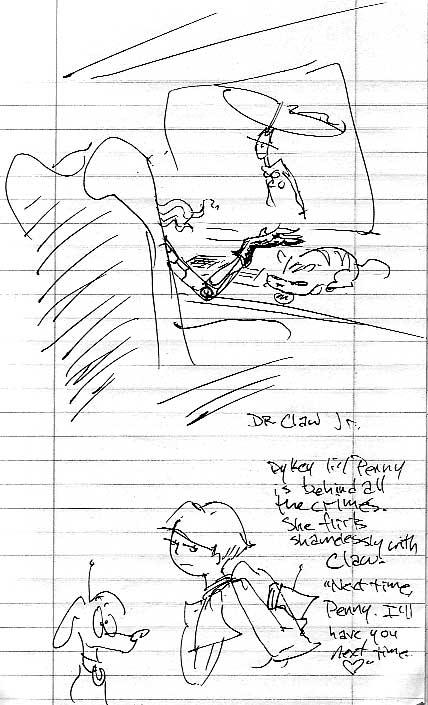 DR Claw Jr.
Dykey lil' Penny
is behind all
the crimes.
She flirts
shamelessly with
Claw.
"Next time,
Penny. I'll
have you
next time.
♡"